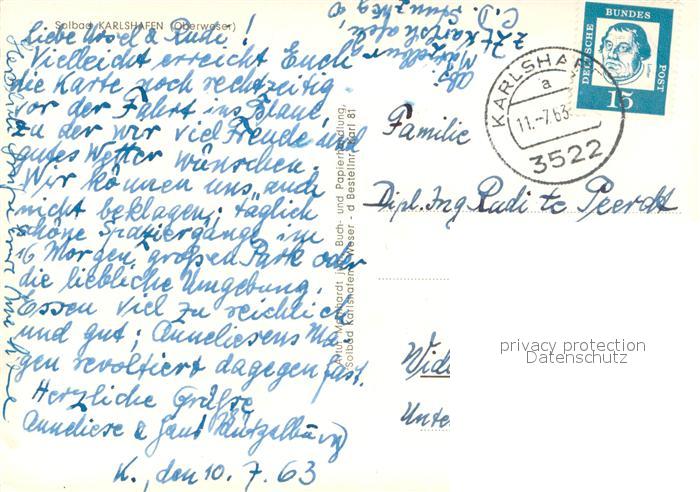 Solbad KARLSHAFEN (Oberweser)
Liebe Ursel & Rudi!
Vielleicht erreicht Euch
die Karte noch rechtzeitig
vor der Fahrt ins Blaue,
zu der wir viel Freude und
gutes Wetter wünschen.
Wir können uns auch
nicht beklagen; täglich
schöne Spaziergänge im
16 Morgen großen Park oder
die liebliche Umgebung.
Essen viel zu reichlich
und gut; Anneliesens Ma-
gen revoltiert dagegen fast.
Herzliche Grüße
Anneliese & Hans
K., den 10.7.63
Herzliche Grüße
Abs.
z. Zt. Karlshafen
Buch- und Papierhandlung,
Solbad Karlshafen Weser - Bestellnr. Karl 81
DEUTSCHE
BUNDES
POST
15
KARLSHAFEN
a
11.-7.63
3522
Familie
Dipl. Ing Rudi te Peerdt
Unter
privacy protection
Datenschutz